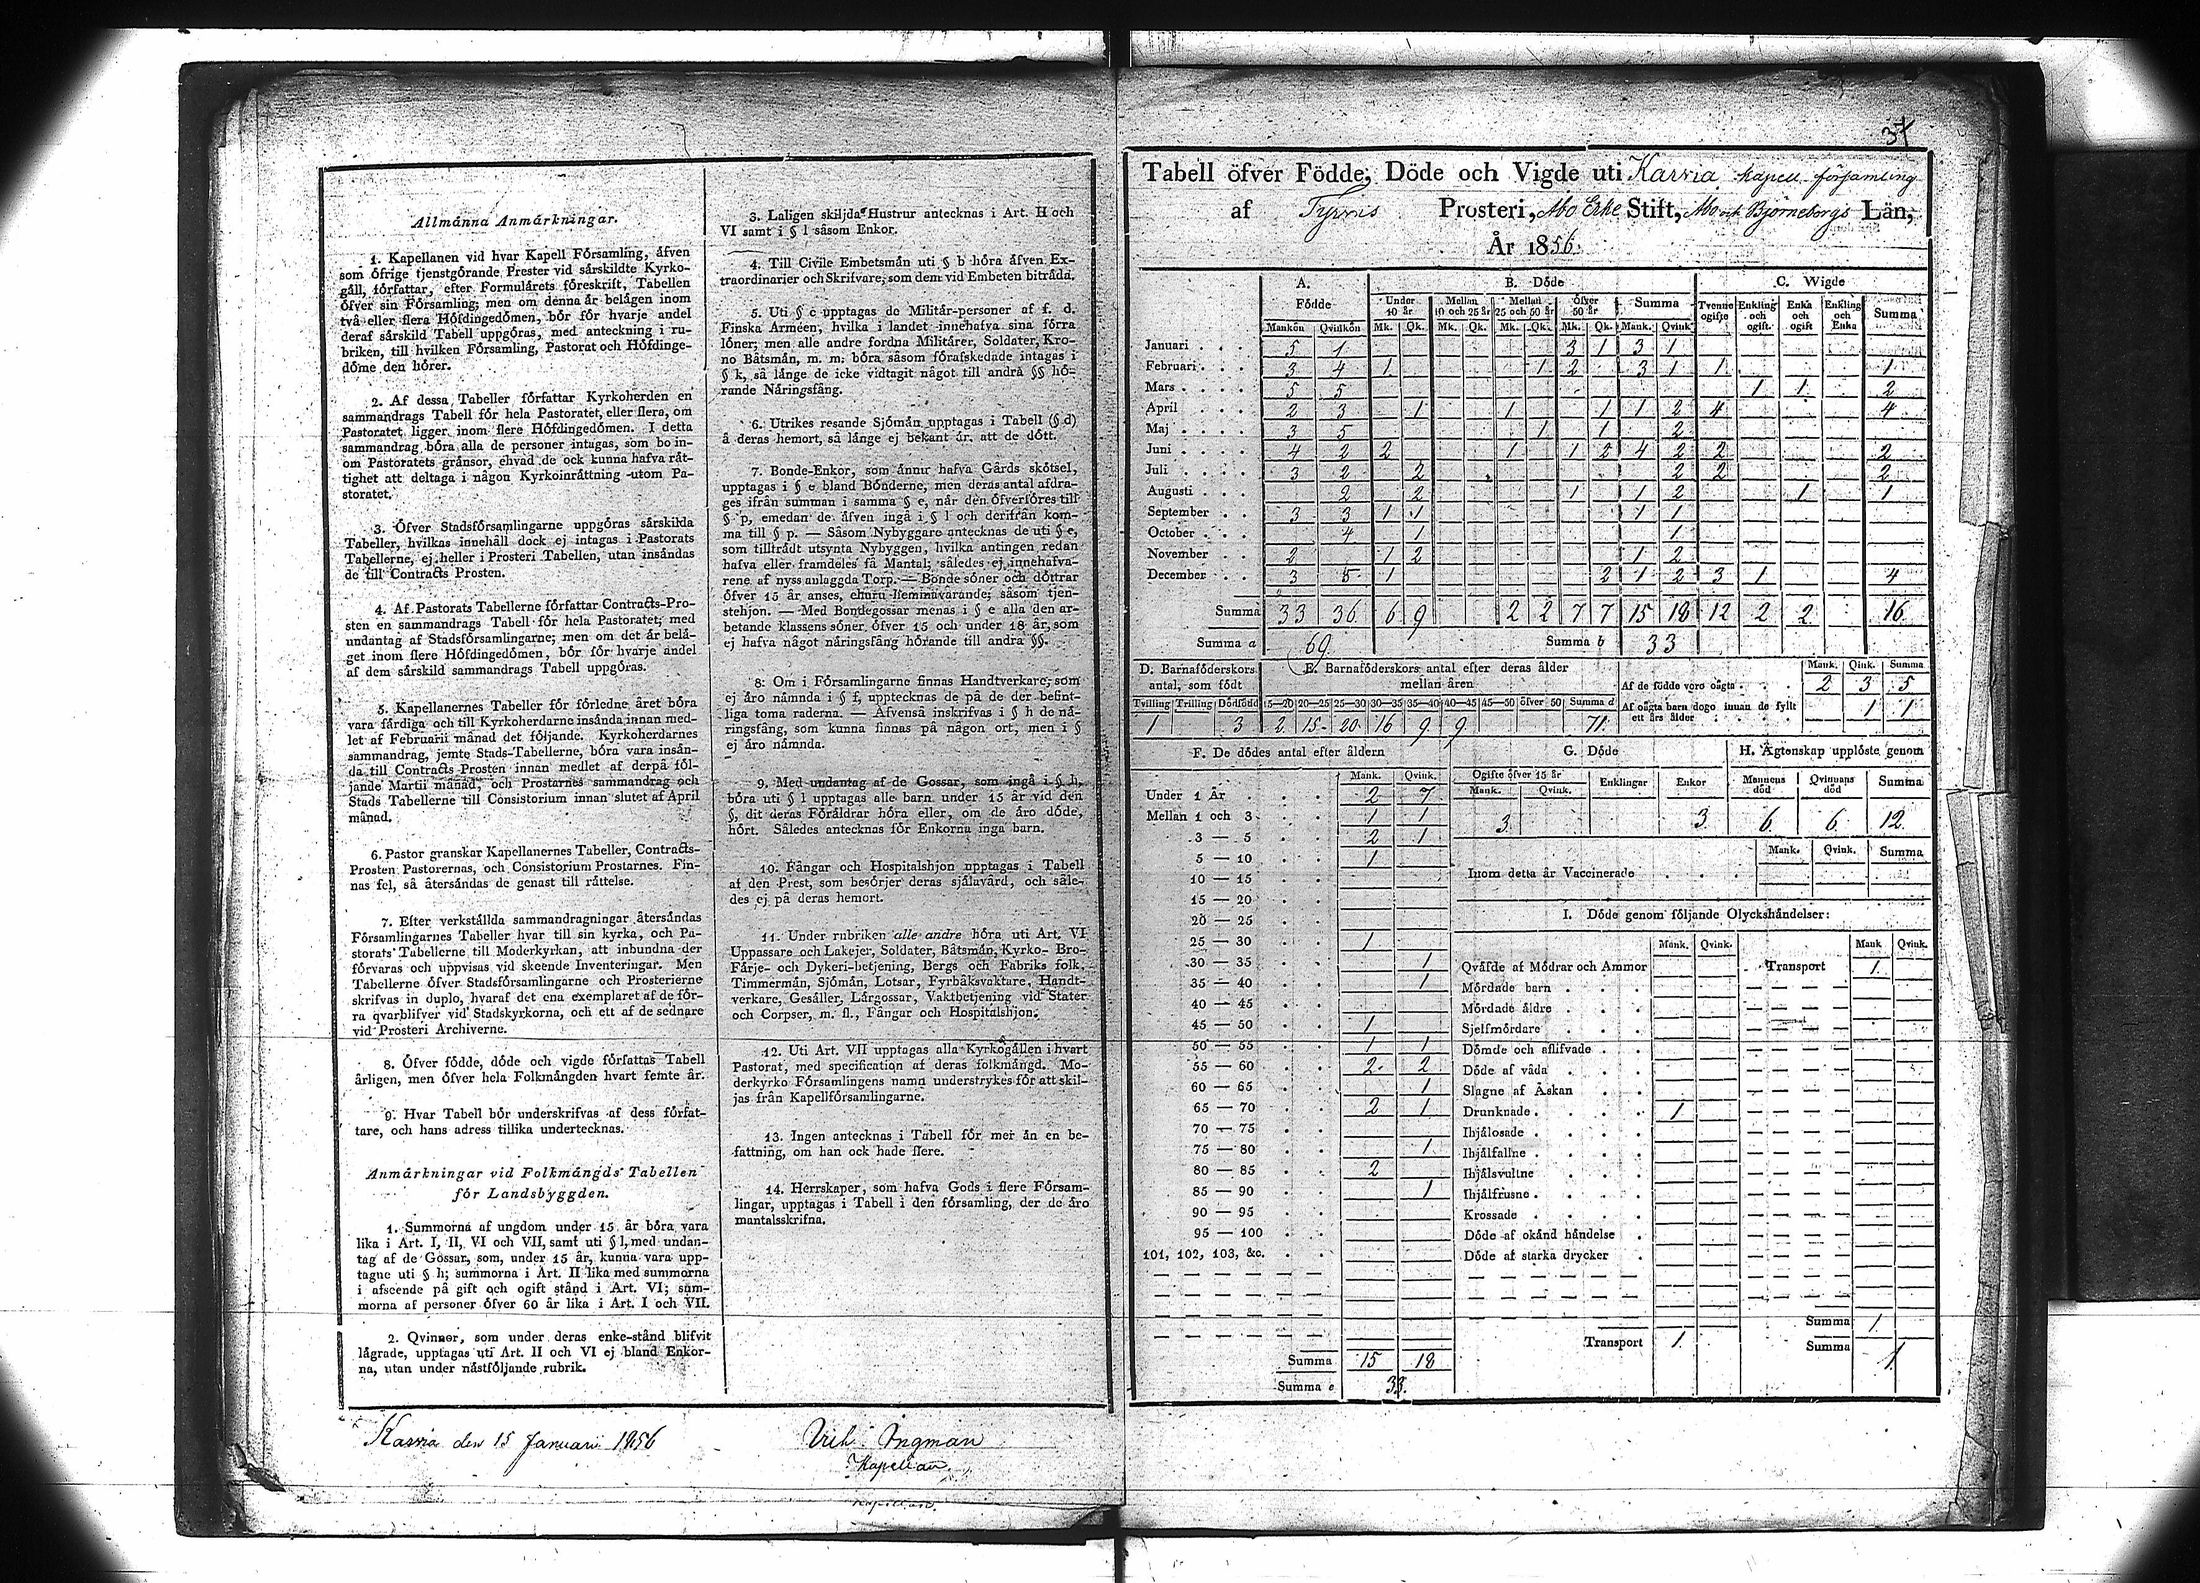 Allmånna Anmårkningar.
1. Kapellanen vid hvar Kapell Församling, åfven
som öfrige tjenstgörande Prester vid sårskildte Kyrko-
gåll, författar, efter Formulårets föreskrift, Tabellen
öfver sin Församling; men om denna år belågen inom
två eller flera Höfdingedömen, bör för hvarje andel
deraf sårskild Tabell uppgöras, med anteckning i ru-
briken, till hvilken Församling, Pastorat och Höfdinge-
döme den hörer.
2. Af dessa Tabeller författar Kyrkoherden en
sammandrags Tabell för hela Pastoratet, eller flera, om
Pastoratet ligger inom flere Höfdingedömen. I detta
sammandrag böra alla de personer intagas, som bo in-
om Pastoratets grånsor, ehvad de ock kunna hafva råt-
tighet att deltaga i någon Kyrkoinråttning utom Pa-
storatet.
3. Öfver Stadsförsamlingarne uppgöras sårskilda
Tabeller, hvilkas innehåll dock ej intagas i Pastorats
Tabellerne, ej heller i Prosteri Tabellen, utan insåndas
de till Contracts Prosten.
4. Af Pastorats Tabellerne författar Contracts-Pro-
sten en sammandrags Tabell för hela Pastoratet, med
undantag af Stadsförsamlingarne; men om det år belå-
get inom flere Höfdingedömen, bör för hvarje andel
af dem sårskild sammandrags Tabell uppgöras.
5. Kapellanernes Tabeller för förledne året böra
vara fårdiga och till Kyrkoherdarne insånda innan med-
let af Februarii månad det följande. Kyrkoherdarnes
sammandrag, jemte Stads-Tabellerne, böra vara insån-
da till Contracts Prosten innan medlet af derpå föl-
jande Martii månad, och Prostarnes sammandrag och
Stads Tabellerne till Consistorium innan slutet af April
månad.
6. Pastor granskar Kapellanernes Tabeller, Contracts-
Prosten Pastorernas, och Consistorium Prostarnes. Fin-
nas fel, så återsåndas de genast till råttelse.
7. Efter verkstållda sammandragningar återsåndas
Församlingarnes Tabeller hvar till sin kyrka, och Pa-
storats Tabellerne till Moderkyrkan, att inbundna der
förvaras och uppvisas vid skeende Inventeringar. Men
Tabellerne öfver Stadsförsamlingarne och Prosterierne
skrifvas in duplo, hvaraf det ena exemplaret af de för-
ra qvarblifver vid Stadskyrkorna, och ett af de sednare
vid Prosteri Archiverne.
8. Öfver födde, döde och vigde författas Tabell
årligen, men öfver hela Folkmångden hvart femte år.
9. Hvar Tabell bör underskrifvas af dess förfat-
tare, och hans adress tillika undertecknas.
Anmårkningar vid Folkmångds Tabellen
för Landsbyggden.
1. Summorna af ungdom under 15 år böra vara
lika i Art. I, II, VI och VII, samt uti § l, med undan-
tag af de Gossar, som, under 15 år, kunna vara upp-
tagne uti § h; summorna i Art. II lika med summorna
i afseende på gift och ogift stånd i Art. VI; sum-
morna af personer öfver 60 år lika i Art. I och VII.
2. Qvinnor, som under deras enke-stånd blifvit
lågrade, upptagas uti Art. II och VI ej bland Enkor-
na, utan under nåstföljande rubrik.
3. Laligen skiljda Hustrur antecknas i Art. II och
VI samt i § l såsom Enkor.
4. Till Civile Embetsmån uti § b höra åfven Ex-
traordinarier och Skrifvare, som dem vid Embeten bitråda.
5. Uti § c upptagas de Militår-personer af f. d.
Finska Arméen, hvilka i landet innehafva sina förra
löner; men alle andre fordna Militårer, Soldater, Kro-
no Båtsmån, m. m. böra såsom förafskedade intagas i
§ k, så långe de icke vidtagit något till andra §§ hö-
rande Nåringsfång.
6. Utrikes resande Sjömån upptagas i Tabell (§ d)
å deras hemort, så långe ej bekant år, att de dött.
7. Bonde-Enkor, som ånnu hafva Gårds skötsel,
upptagas i § e bland Bönderne, men deras antal afdra-
ges ifrån summan i samma § e, når den öfverföres till
§ p, emedan de åfven ingå i § l och derifrån kom-
ma till § p. — Såsom Nybyggare antecknas de uti § e,
som tilltrådt utsynta Nybyggen, hvilka antingen redan
hafva eller framdeles få Mantal; således ej innehafva-
rene af nyss anlaggda Torp. — Bonde söner och döttrar
öfver 15 år anses, ehuru hemmavarande, såsom tjen-
stehjon. — Med Bondegossar menas i § e alla den ar-
betande klassens söner öfver 15 och under 18 år, som
ej hafva något nåringsfång hörande till andra §§.
8. Om i Församlingarne finnas Handtverkare, som
ej åro nåmnda i § f, upptecknas de på de der befint-
liga toma raderna. — Åfvenså inskrifvas i § h de nå-
ringsfång, som kunna finnas på någon ort, men i §
ej åro nåmnda.
9. Med undantag af de Gossar, som ingå i § h,
böra uti § l upptagas alle barn under 15 år vid den
§, dit deras Föråldrar höra eller, om de åro döde,
hört. Således antecknas för Enkorna inga barn.
10. Fångar och Hospitalshjon upptagas i Tabell
af den Prest, som besörjer deras sjålavård, och såle-
des ej på deras hemort.
11. Under rubriken alle andre höra uti Art. VI
Uppassare och Lakejer, Soldater, Båtsmån, Kyrko- Bro-
Fårje- och Dykeri-betjening, Bergs och Fabriks folk,
Timmermån, Sjömån, Lotsar, Fyrbåksvaktare, Handt-
verkare, Gesåller, Lårgossar, Vaktbetjening vid Ståter
och Corpser, m. fl., Fångar och Hospitalshjon.
12. Uti Art. VII upptagas alla Kyrkogållen i hvart
Pastorat, med specification af deras folkmångd. Mo-
derkyrko Församlingens namn understrykes för att skil-
jas från Kapellförsamlingarne.
13. Ingen antecknas i Tabell för mer ån en be-
fattning, om han ock hade flere.
14. Herrskaper, som hafva Gods i flere Försam-
lingar, upptagas i Tabell i den församling, der de åro
mantalsskrifna.
Karvia den 15 Januari 1856
Erik Ingman
Kapellan.
37
Tabell öfver Födde, Döde och Vigde uti Karvia kapell församling
af Tyrvis Prosteri, Åbo Erke Stift, Åbo och Björneborgs Län,
År 1856.
A. Födde B. Döde C. Wigde
Under 10 år Mellan 10 och 25 år Mellan 25 och 50 år Öfver 50 år Summa Tvenne ogifte Enkling och ogift. Enka och ogift Enkling och Enka Summa
Mankön Qvinkön Mk. Qk. Mk. Qk. Mk. Qk. Mk. Qk. Mank. Qvink.
Januari . . . 5 1 3 1 3 1
Februari . . . 3 4 1 1 2 3 1 1 1
Mars . . . 5 5 1 1 2
April . . . 2 3 1 1 1 1 2 4 4
Maj . . . 3 5 1 1 2
Juni . . . 4 2 2 1 1 2 4 2 2 2
Juli . . . 3 2 2 2 2 2
Augusti . . . 2 2 1 1 2 1 1
September . . 3 3 1 1 1 1
October . . . 4 1 1
November . . 2 1 2 1 2
December . . 3 5 1 2 1 2 3 1 4
Summa 33 36 6 9 2 2 7 7 15 18 12 2 2 16
Summa a 69 Summa b 33
D. Barnaföderskors antal, som födt
Tvilling Trilling Dödfödd
1 3
E. Barnaföderskors antal efter deras ålder mellan åren
15—20 20—25 25—30 30—35 35—40 40—45 45—50 öfver 50 Summa d
2 15 20 16 9 9 71
Mank. Qink. Summa
Af de födde voro oågta . . . 2 3 5
Af oågta barn dogo innan de fyllt ett års ålder . . . 1 1
F. De dödes antal efter åldern
Mank. Qvink.
Under 1 År . . . 2 7
Mellan 1 och 3 . . 1 1
3 — 5 . . 2 1
5 — 10 . . 1
10 — 15 . .
15 — 20 . .
20 — 25 . .
25 — 30 . . 1
30 — 35 . . 1
35 — 40 . . 1
40 — 45 . .
45 — 50 . . 1
50 — 55 . . 1 1
55 — 60 . . 2 2
60 — 65 . . 1
65 — 70 . . 2 1
70 — 75 . .
75 — 80 . . 1
80 — 85 . . 2
85 — 90 . . 1
90 — 95 . .
95 — 100 . .
101, 102, 103, &c. . .
Summa 15 18
Summa e 33.
G. Döde
Ogifte öfver 15 år Enklingar Enkor
Mank. Qvink.
3 3
H. Ågtenskap upplöste genom
Mannens död Qvinnans död Summa
6 6 12
Mank. Qvink. Summa
Inom detta år Vaccinerade . . .
I. Döde genom följande Olyckshåndelser:
Mank. Qvink. Mank. Qvink.
Qvåfde af Mödrar och Ammor Transport 1
Mördade barn . . .
Mördade åldre . . .
Sjelfmördare . . .
Dömde och aflifvade . .
Döde af våda . . .
Slagne af Åskan . .
Drunknade . . . . 1
Ihjålosade . . . .
Ihjålfallne . . . .
Ihjålsvultne . . .
Ihjålfrusne . . . .
Krossade . . . .
Döde af okånd håndelse .
Döde af starka drycker .
Summa 1
Transport 1 Summa 1